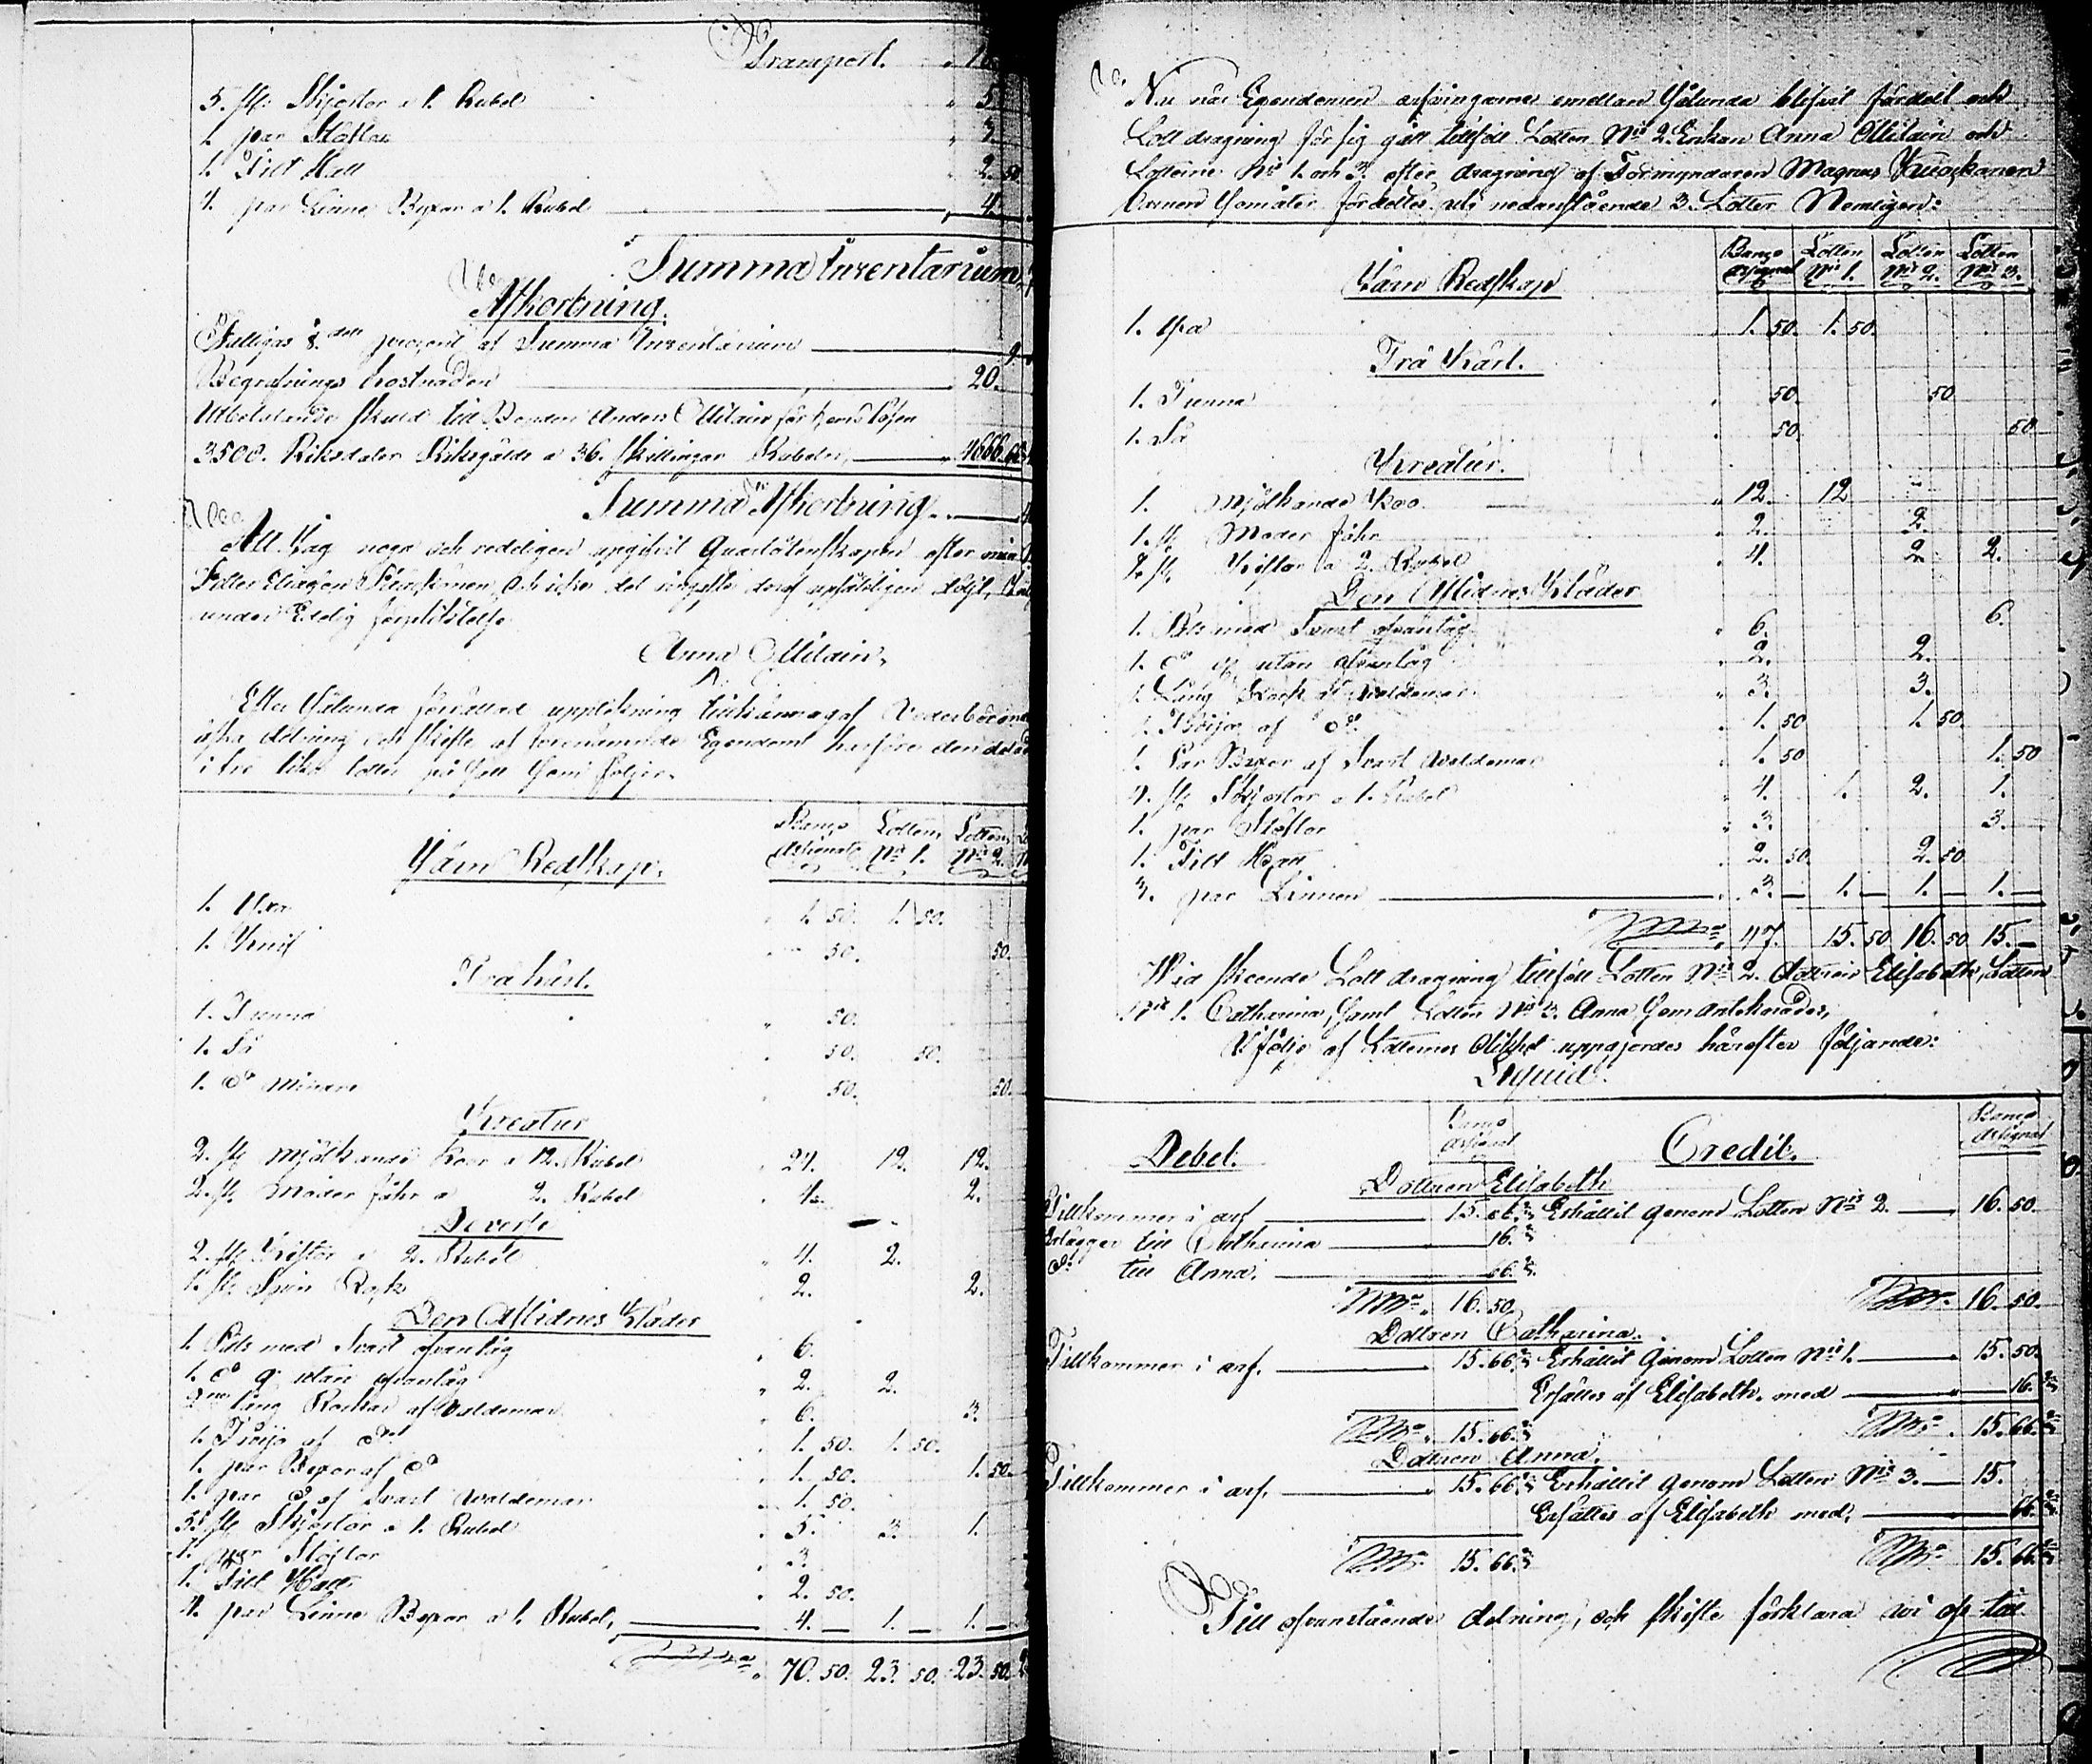 Transport.
5. st: Skjortor a 1. Rubel 5.
1. par Stöflar 3.
1. Filt Hatt 2. 50
4. par Linne Byxor a 1. Rubel 4.
Summa Inventarium
Afkortning.
procent af Summa Inventarium 9
Begrafnings kostnaden 20.
Utbetalande skuld till Bonden Anders för
3500. Riksdaler Riksgälds a 36. skillingar Rubler, 4666.66
Summa Afkortning.
Att Jag noga och redeligen upgifvit Quarlåtenskapen efter min
och icke det ringaste deraf upsåteligen döljt,
under Edelig förpliktelse
Anna
Efter Sålunda förrättad uppteckning
delning och skifte af förenämnde Egendom
i tre lika lotter på sätt som följer.
Banco Assignat: Lotten N:o 1. Lotten N:o 2.
Järn Redskap.
1. Yxa 1. 50. 1. 50.
1. Knif 50. 50.
Trä kärl.
1. Tunna 50.
1. Så 50. 50.
1. d:o mindre 50. 50.
Kreatur
2. st: mjölkande Koor a 12. Rubel 24. 12. 12.
2. st. Moder fåhr a 2. Rubel 4. 2.
Diverse
2. st: Kistor a 2. Rubel 4. 2.
1. st: Spin Rock 2. 2.
Den Aflidnes Kläder
1. Päls med Svart öfvertåg 6.
1. d:o utan öfvertåg 2. 2.
lång Rockar af Valdemar 6. 3.
1. Tröja af d:o 1. 50. 1. 50.
1. par Byxor af d:o 1. 50. 1. 50.
1. par d:o af Svart waldemar 1. 50.
5. st: Skjortor a 1. Rubel 5. 3. 1.
1. par Stöflar 3.
1. Filt Hatt 2. 50.
4. par Linne Byxor a 1. Rubel, 4. 1. 1.
70. 50. 23. 50. 23. 50.
Nu när Egendomen arfvingarne emellan Sålunda blifvit fördelt och
Lott dragning för sig gått tillföll Lotten N:o 2. Enkan Anna och
Lotterne N:o 1. och 3. efter dragning af Förmyndaren Magnus
Barnen fördeltes uti nedanstående 3. Lotter Nemligen:
Banco Assignat Lotten N:o 1. Lotten N:o 2. Lotten N:o 3.
Järn Redskap
1. Yxa 1. 50. 1. 50.
Trä Kärl.
1. Tunna 50. 50
1. Så 50. 50
Kreatur.
1. Mjölkande Koo. 12. 12
1. st: Moder fåhr 2. 2.
2. st: Kistor a 2. Rubel 4. 2. 2.
Den Aflidnes Kläder
1. Päls med Svart öfvertåg 6. 6.
1. d:o utan öfvertåg 2. 2.
1. Lång Rock af Waldemar 3. 3.
1. Tröja af d:o 1. 50 1. 50.
1. Par Byxor af Svart Waldemar 1. 50 1. 50
4. st: Skjortor a 1. Rubel 4. 1. 2. 1.
1. par Stöflar 3. 3.
1. Filt Hatt 2. 50. 2. 50
3. par Linnen 3. 1. 1. 1.
47. 15. 50 16. 50 15.
Wid skeende Lott dragning tillföll Lotten N:o 2. dottren Elisabeth, Lotten
N:o 1. Catharina, samt Lotten N:o 3. Anna som antecknades,
I följe af Lotternes olikhet uppgjordes härefter följande:
Liquid.
Debet. Banco Assignat Credit. Banco Assignat
Dottren Elisabeth
Tillkommer i arf 15. 66. 2/3 Erhållit genom Lotten N:o 2. 16. 50.
Erlägger till Catharina 16. 2/3
d:o till Anna. 66. 2/3
16. 50. 16. 50.
Dottren Catharina.
Tillkommer i arf. 15. 66. 2/3 Erhållit genom Lotten N:o 1. 15. 50.
Ersättes af Elisabeth med 16. 2/3
15. 66. 2/3 15. 66. 2/3
Dottren Anna.
Tillkommer i arf. 15. 66. 2/3 Erhållit genom Lotten N:o 3. 15.
Ersättes af Elisabeth med, 66. 2/3
15. 66. 2/3 15. 66. 2/3
Till ofvanstående delning, och skifte förklara wi